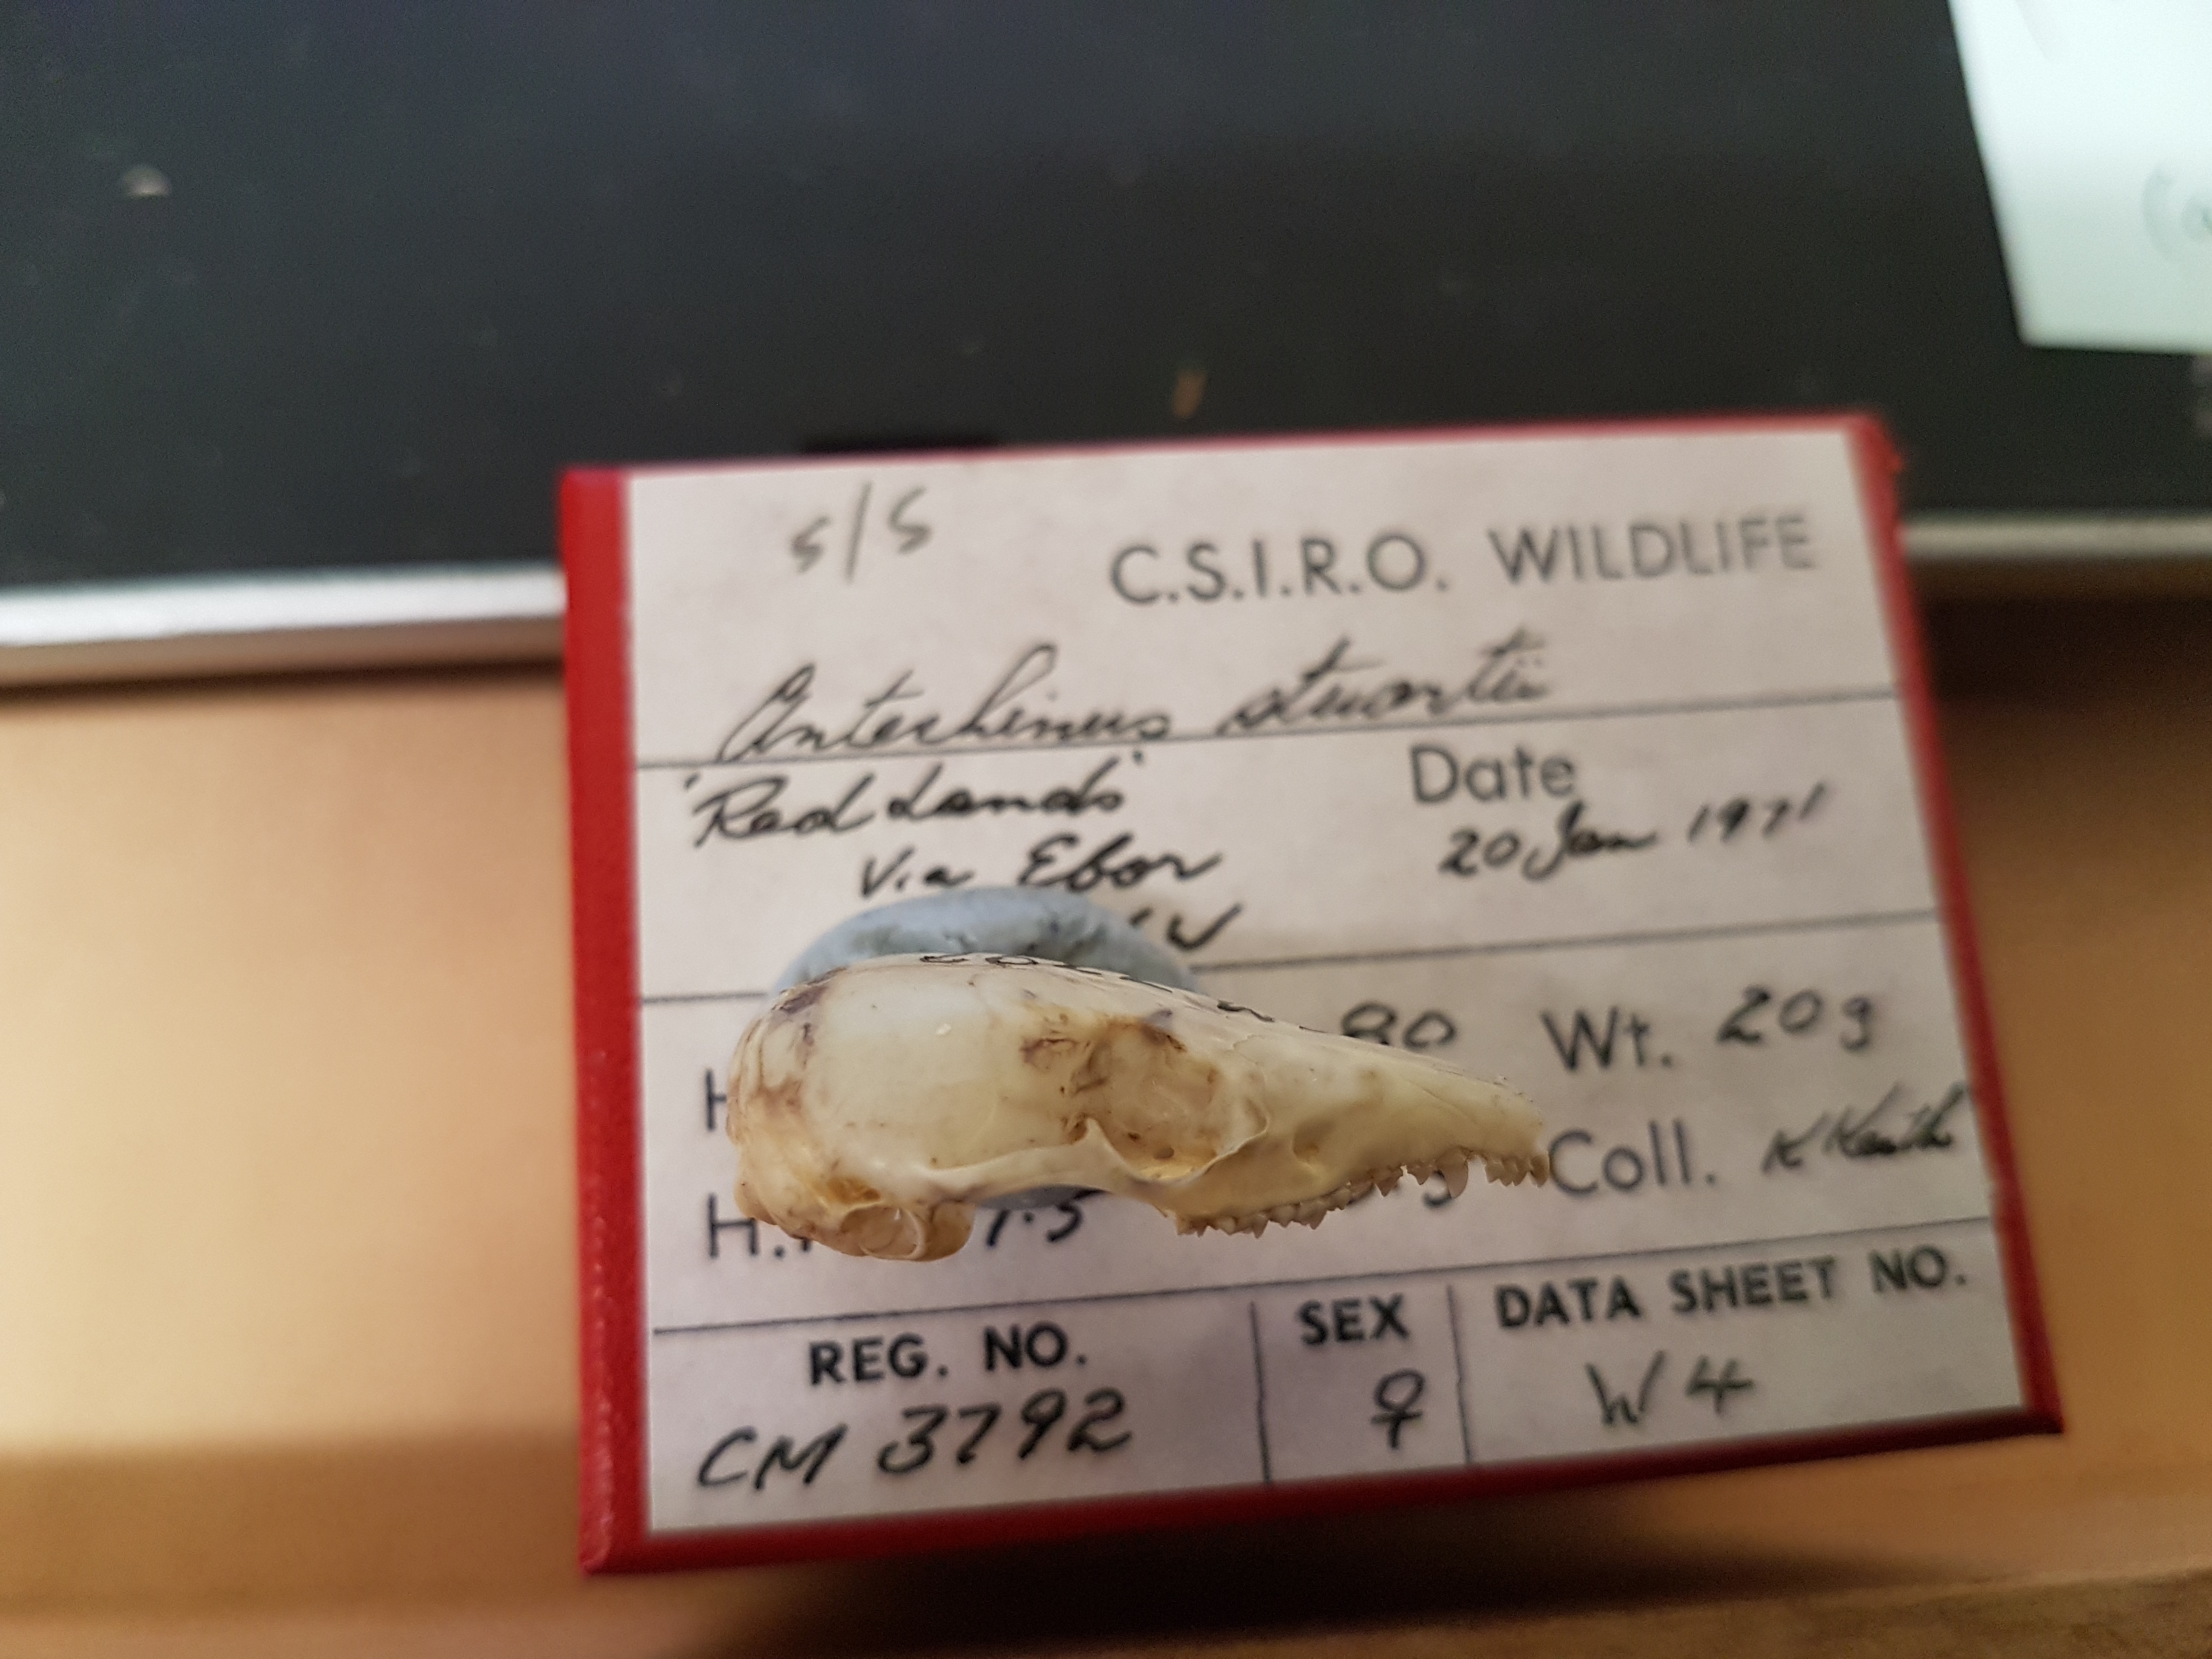 s/s
C.S.I.R.O. WILDLIFE
Antechinus stuartii
'Red Lands' Date
Via Ebor 20 Jan 1971
W
80 Wt. 20g
H
H. 7.5 Coll. K Keith
REG. NO. SEX DATA SHEET NO.
CM 3792 ♀ W4